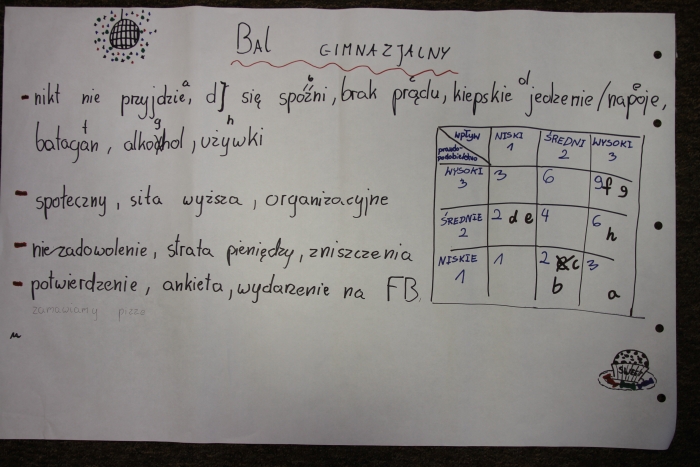 BAL GIMNAZJALNY
a b c d
- nikt nie przyjdzie, dJ się spóźni, brak prądu, kiepskie jedzenie/napoje,
f g h
bałagan, alkohol, używki
- społeczny, siła wyższa, organizacyjne
- niezadowolenie, strata pieniędzy, zniszczenia
- potwierdzenie, ankieta, wydarzenie na FB
zamawiamy pizze
wpływ NISKI ŚREDNI WYSOKI
prawdopodobieństwo 1 2 3
WYSOKI 3 6 9 f g
3
ŚREDNIE 2 d e 4 6
2 h
NISKIE 1 2 c 3
1 b a
SWEET